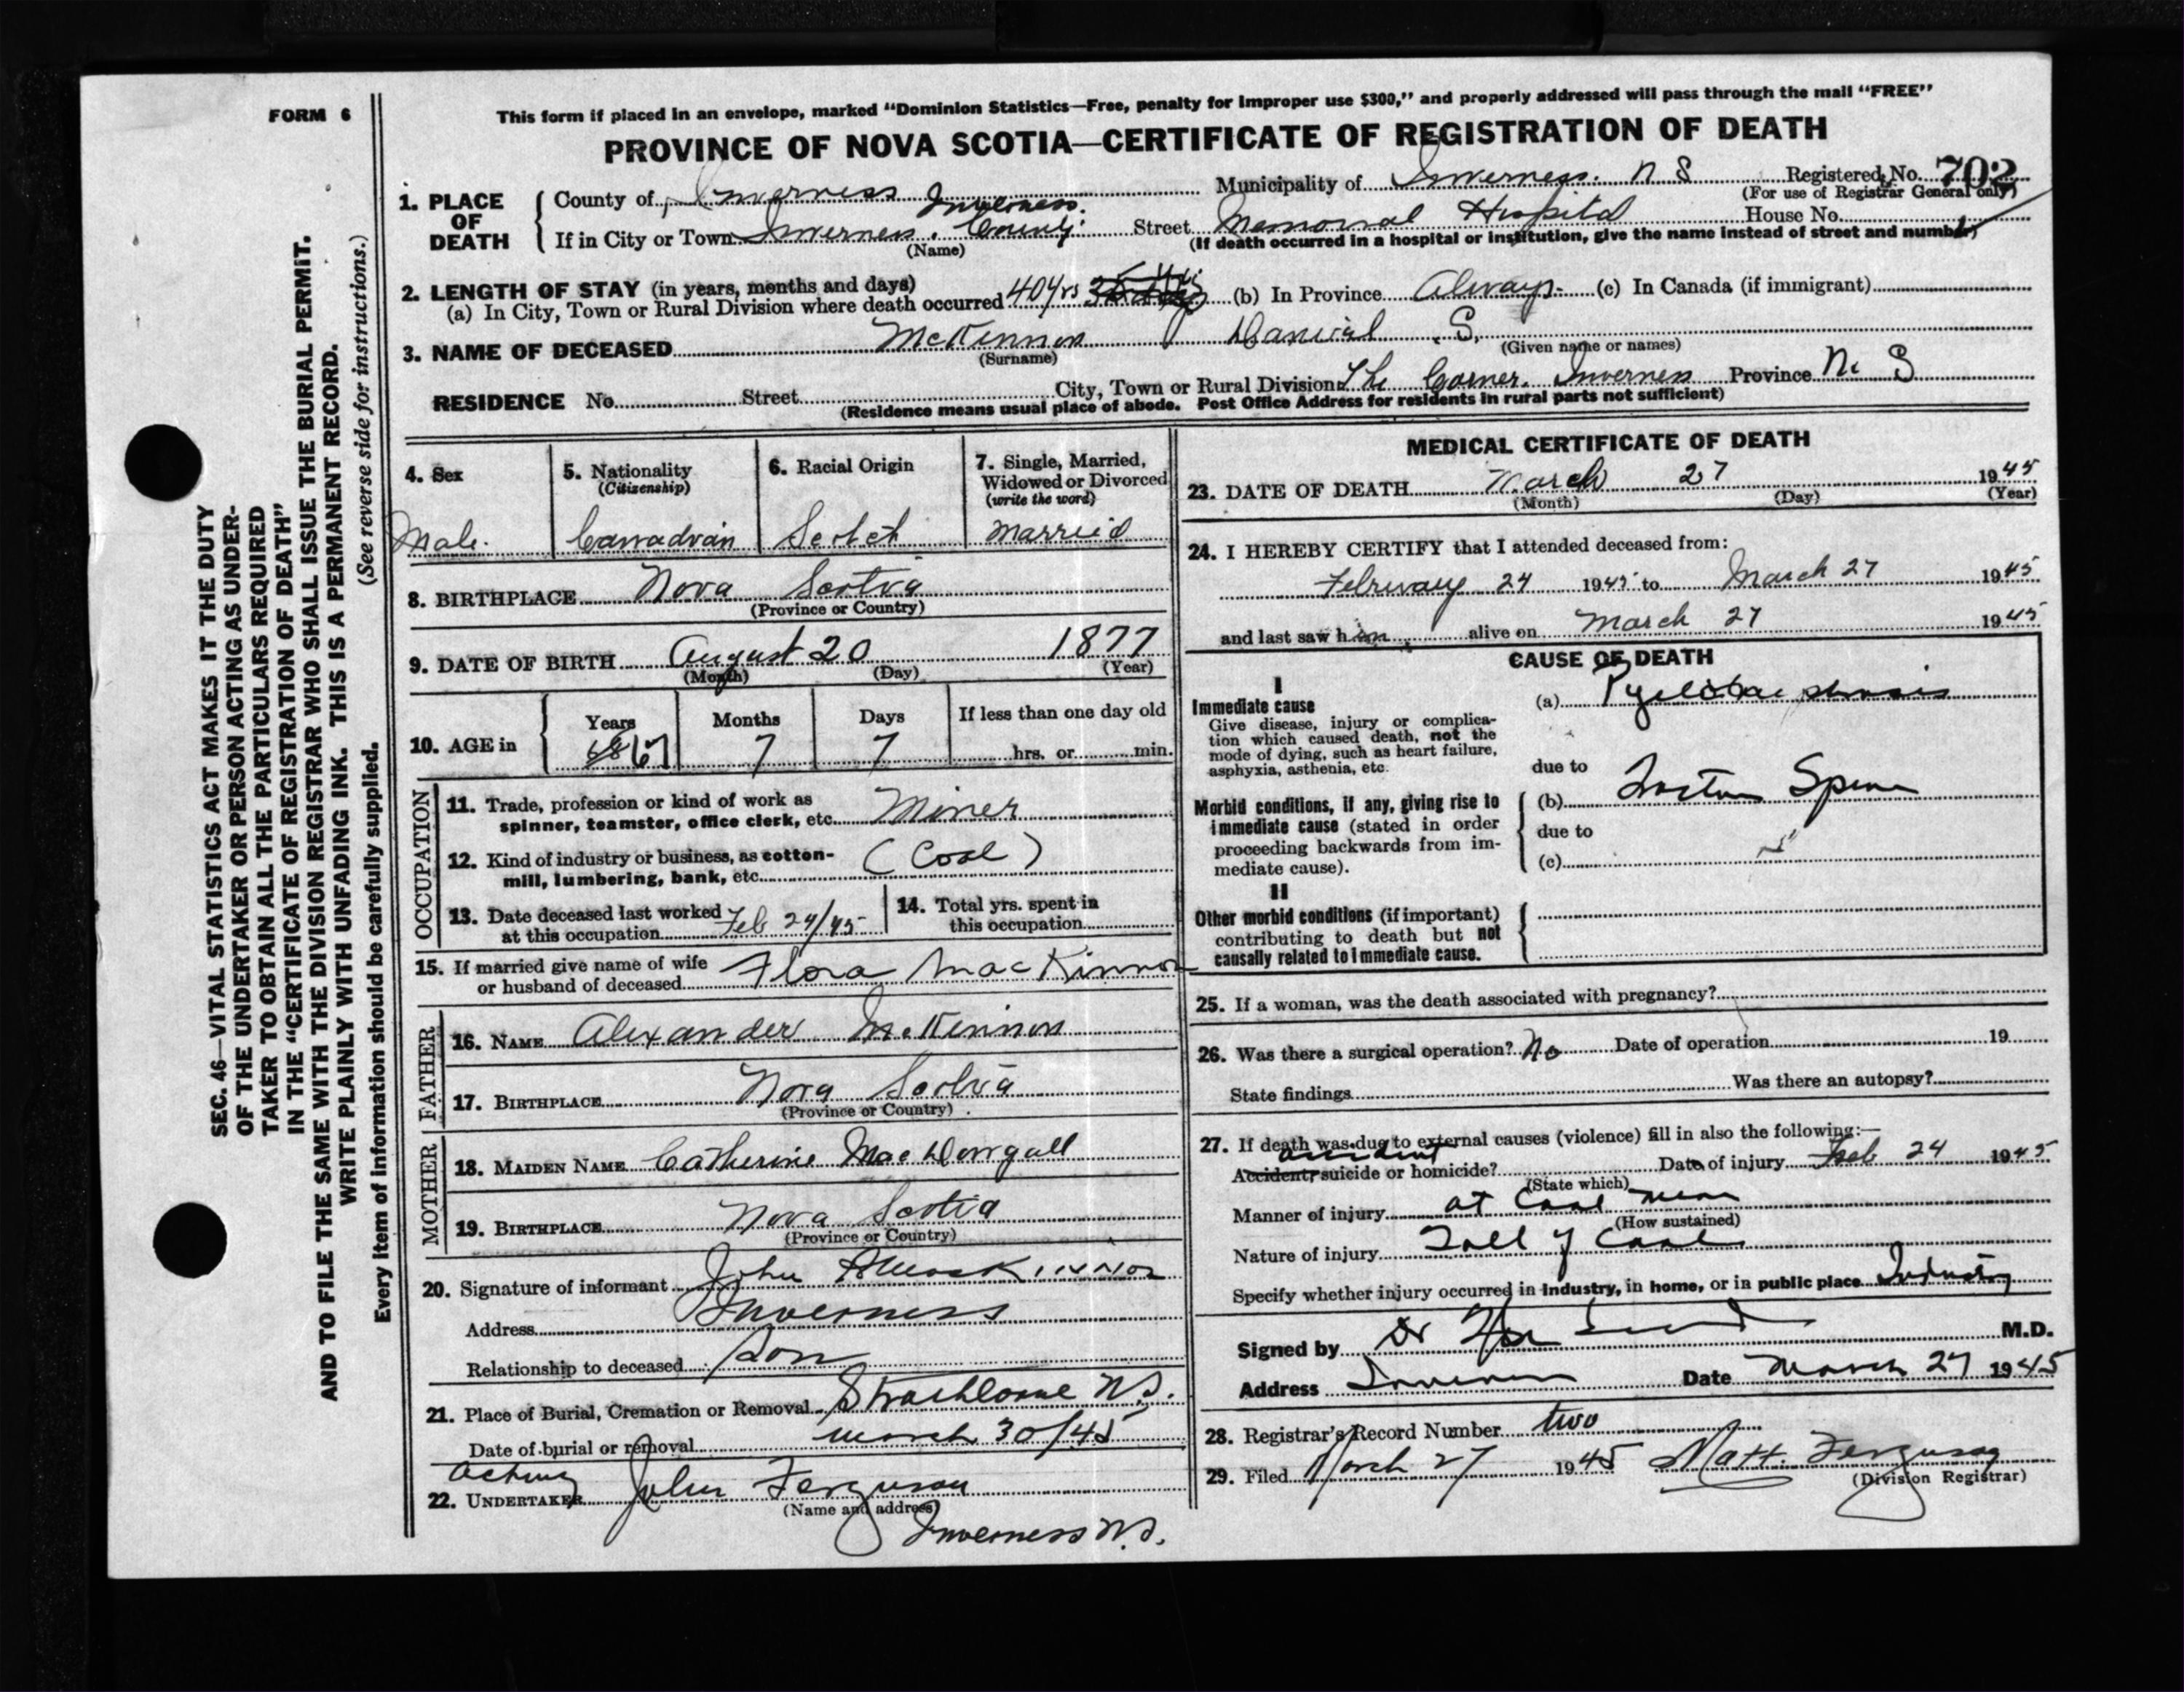 FORM 6
This form if placed in an envelope, marked "Dominion Statistics—Free, penalty for improper use $300," and properly addressed will pass through the mail "FREE"
PROVINCE OF NOVA SCOTIA—CERTIFICATE OF REGISTRATION OF DEATH
SEC. 46—VITAL STATISTICS ACT MAKES IT THE DUTY
OF THE UNDERTAKER OR PERSON ACTING AS UNDER-
TAKER TO OBTAIN ALL THE PARTICULARS REQUIRED
IN THE "CERTIFICATE OF REGISTRATION OF DEATH"
AND TO FILE THE SAME WITH THE DIVISION REGISTRAR WHO SHALL ISSUE THE BURIAL PERMIT.
WRITE PLAINLY WITH UNFADING INK. THIS IS A PERMANENT RECORD.
(See reverse side for instructions.)
Every item of information should be carefully supplied.
1. PLACE OF DEATH
County of Inverness Municipality of Inverness. N S Registered No. 702
(For use of Registrar General only)
If in City or Town Inverness. Inverness County. Street Memorial Hospital House No.
(Name) (If death occurred in a hospital or institution, give the name instead of street and number)
2. LENGTH OF STAY (in years, months and days)
(a) In City, Town or Rural Division where death occurred 40 yrs (b) In Province Always. (c) In Canada (if immigrant)
3. NAME OF DECEASED McKinnon Daniel S.
(Surname) (Given name or names)
RESIDENCE No. Street City, Town or Rural Division The Corner. Inverness Province N. S
(Residence means usual place of abode. Post Office Address for residents in rural parts not sufficient)
4. Sex 5. Nationality (Citizenship) 6. Racial Origin 7. Single, Married, Widowed or Divorced (write the word)
Male. Canadian Scotch Married
8. BIRTHPLACE Nova Scotia
(Province or Country)
9. DATE OF BIRTH August 20 1877
(Month) (Day) (Year)
10. AGE in Years Months Days If less than one day old
68 67 7 7 hrs. or min.
OCCUPATION
11. Trade, profession or kind of work as
spinner, teamster, office clerk, etc. Miner
12. Kind of industry or business, as cotton-
mill, lumbering, bank, etc. (Coal)
13. Date deceased last worked
at this occupation Feb 24/45
14. Total yrs. spent in
this occupation
15. If married give name of wife
or husband of deceased Flora MacKinnon
FATHER
16. NAME Alexander McKinnon
17. BIRTHPLACE Nova Scotia
(Province or Country)
MOTHER
18. MAIDEN NAME Catherine MacDougall
19. BIRTHPLACE Nova Scotia
(Province or Country)
20. Signature of informant John MacKinnon
Address Inverness
Relationship to deceased Son
21. Place of Burial, Cremation or Removal Strathlorne N.S.
Date of burial or removal March 30/45
Acting
22. UNDERTAKER John Ferguson
(Name and address)
Inverness N.S.
MEDICAL CERTIFICATE OF DEATH
23. DATE OF DEATH March 27 1945
(Month) (Day) (Year)
24. I HEREBY CERTIFY that I attended deceased from:
February 24 1945 to March 27 1945
and last saw him alive on March 27 1945
CAUSE OF DEATH
I
Immediate cause
Give disease, injury or complica-
tion which caused death, not the
mode of dying, such as heart failure,
asphyxia, asthenia, etc.
(a)
due to
Morbid conditions, if any, giving rise to
immediate cause (stated in order
proceeding backwards from im-
mediate cause).
(b) Spine
due to
(c)
II
Other morbid conditions (if important)
contributing to death but not
causally related to immediate cause.
25. If a woman, was the death associated with pregnancy?
26. Was there a surgical operation? No Date of operation 19
State findings Was there an autopsy?
27. If death was due to external causes (violence) fill in also the following:—
accident
Accident, suicide or homicide? Date of injury Feb 24 1945
(State which)
Manner of injury at Coal mine
(How sustained)
Nature of injury Fall of Coal
Specify whether injury occurred in industry, in home, or in public place Industry
Signed by Dr M.D.
Address Inverness Date March 27 1945
28. Registrar's Record Number two
29. Filed March 27 1945 Matt. Ferguson
(Division Registrar)